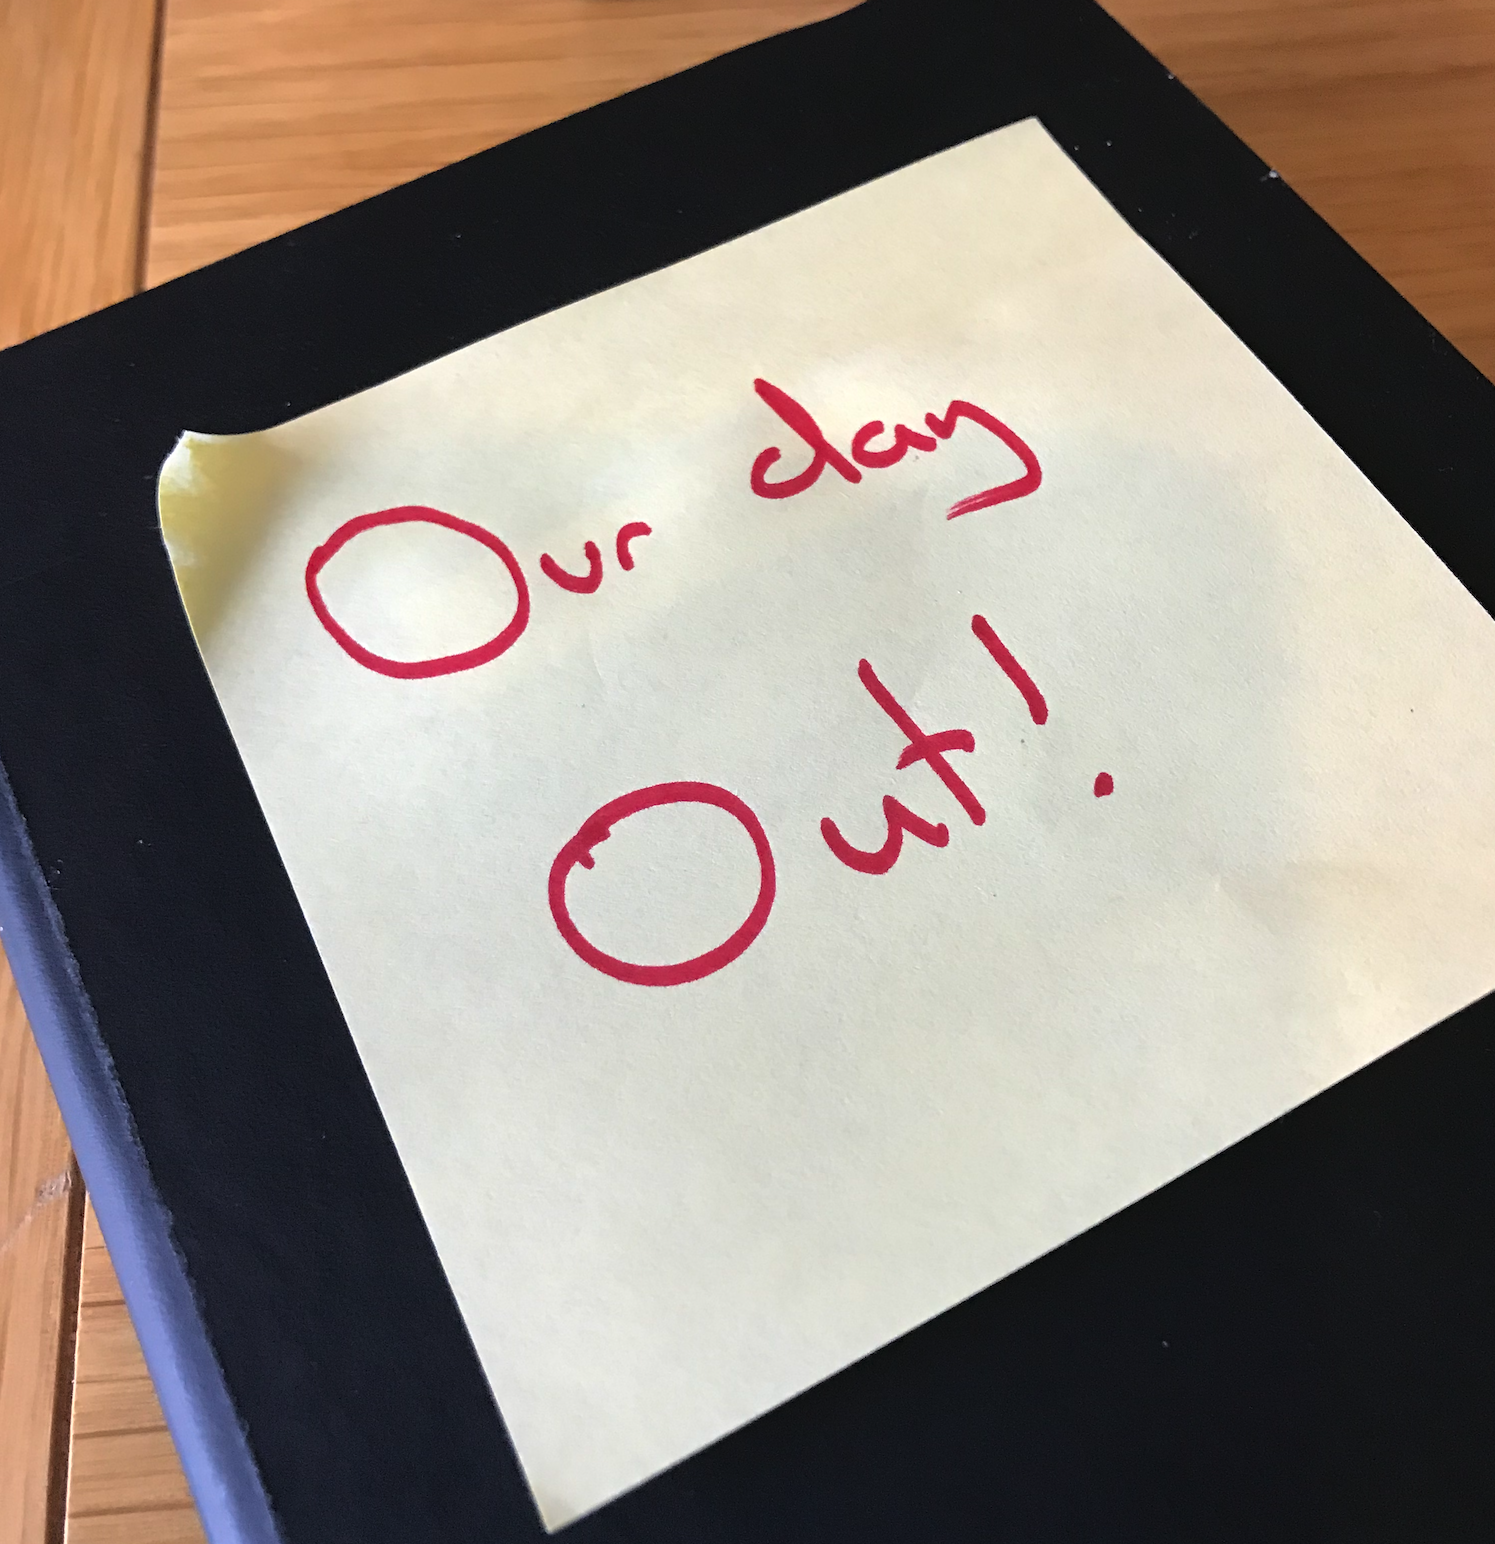 Our day
Out!